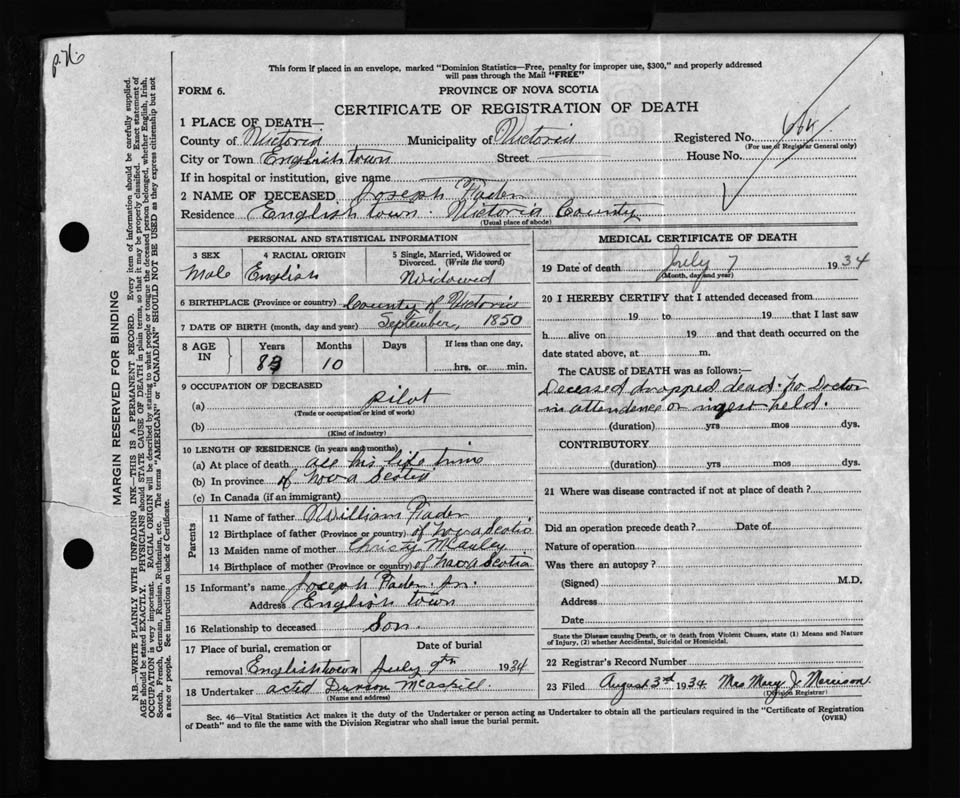 p. 76
This form if placed in an envelope, marked "Dominion Statistics—Free, penalty for improper use, $300," and properly addressed
will pass through the Mail "FREE"
FORM 6. PROVINCE OF NOVA SCOTIA
CERTIFICATE OF REGISTRATION OF DEATH
1 PLACE OF DEATH—
County of Victoria Municipality of Victoria Registered No. 664
(For use of Registrar General only)
City or Town Englishtown Street House No.
If in hospital or institution, give name
2 NAME OF DECEASED Joseph Fader
Residence Englishtown. Victoria County
(Usual place of abode)
PERSONAL AND STATISTICAL INFORMATION
3 SEX 4 RACIAL ORIGIN 5 Single, Married, Widowed or Divorced. (Write the word)
Male English Widowed
6 BIRTHPLACE (Province or country) County of Victoria
7 DATE OF BIRTH (month, day and year) September, 1850
8 AGE IN Years Months Days If less than one day,
83 10 hrs. or min.
9 OCCUPATION OF DECEASED
(a) pilot
(Trade or occupation or kind of work)
(b)
(Kind of industry)
10 LENGTH OF RESIDENCE (in years and months)
(a) At place of death all his life time
(b) In province of Nova Scotia
(c) In Canada (if an immigrant)
Parents
11 Name of father William Fader
12 Birthplace of father (Province or country) of Nova Scotia
13 Maiden name of mother Christy McAuley
14 Birthplace of mother (Province or country) of Nova Scotia
15 Informant's name Joseph Fader Jr.
Address Englishtown
16 Relationship to deceased Son.
17 Place of burial, cremation or Date of burial
removal Englishtown July 9th 1934
18 Undertaker acted Duncan McAskill
(Name and address)
MEDICAL CERTIFICATE OF DEATH
19 Date of death July 7 1934
(Month, day and year)
20 I HEREBY CERTIFY that I attended deceased from
19 to 19 that I last saw
h alive on 19 and that death occurred on the
date stated above, at m.
The CAUSE of DEATH was as follows:—
Deceased dropped dead. No Doctor
in attendence or inqest held.
(duration) yrs mos dys.
CONTRIBUTORY
(duration) yrs mos dys.
21 Where was disease contracted if not at place of death?
Did an operation precede death? Date of
Nature of operation
Was there an autopsy?
(Signed) M.D.
Address
Date
State the Disease causing Death, or in death from Violent Causes, state (1) Means and Nature
of Injury, (2) whether Accidental, Suicidal or Homicidal.
22 Registrar's Record Number
23 Filed August 3rd 1934 Mrs Mary J. Morrison.
(Division Registrar)
Sec. 46—Vital Statistics Act makes it the duty of the Undertaker or person acting as Undertaker to obtain all the particulars required in the "Certificate of Registration
of Death" and to file the same with the Division Registrar who shall issue the burial permit. (OVER)
MARGIN RESERVED FOR BINDING
N.B.—WRITE PLAINLY WITH UNFADING INK—THIS IS A PERMANENT RECORD. Every item of information should be carefully supplied.
AGE should be stated EXACTLY. PHYSICIANS should STATE CAUSE OF DEATH in plain terms, so that it may be properly classified. Exact statement of
OCCUPATION is very important. RACIAL ORIGIN will be described by stating to what people or tongue the deceased person belonged, whether English, Irish,
Scotch, French, German, Russian, Ruthenian, etc. The terms "AMERICAN" or "CANADIAN" SHOULD NOT BE USED as they express citizenship but not
a race or people. See instructions on back of Certificate.